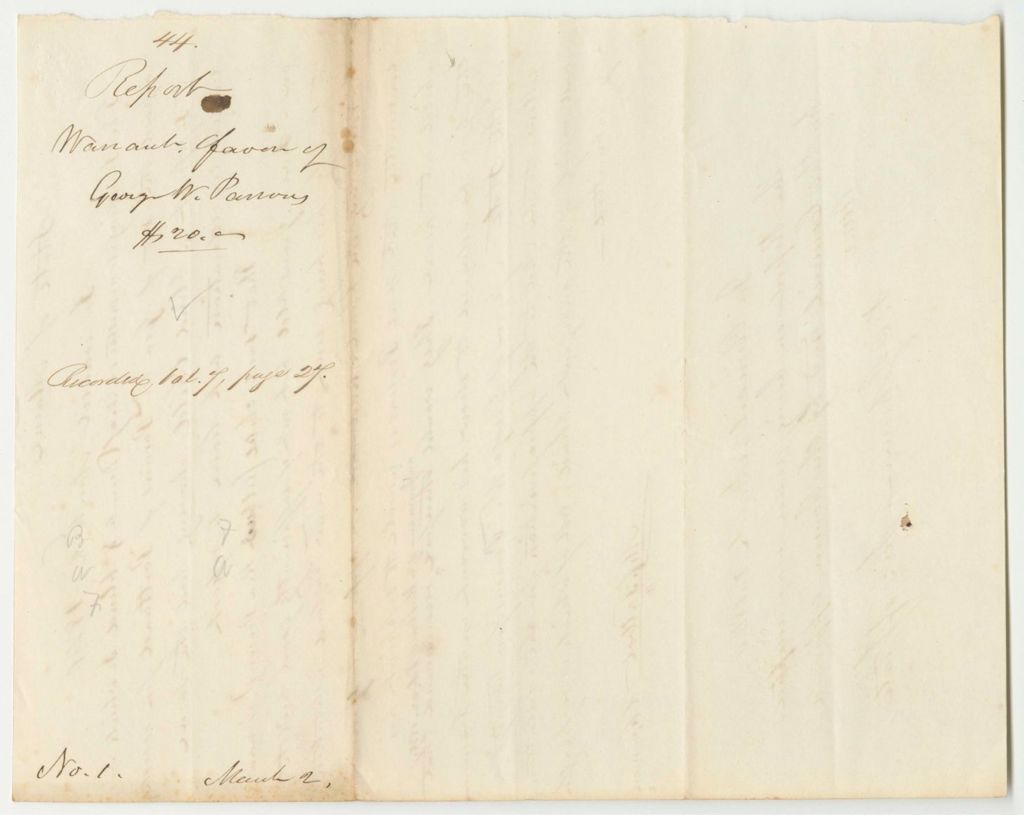 44.
Report
Warrant. favor of
George W. Parsons
$20.
Recorded, Vol. 7, page 27.
B 7
a a
7
No. 1. March 2,